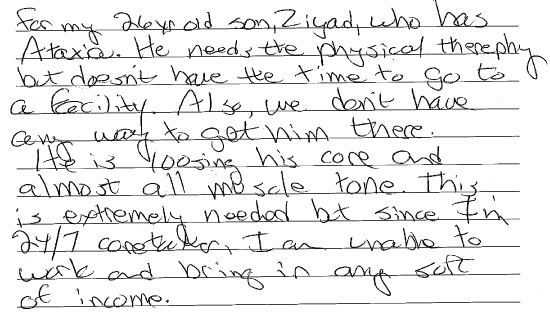 for my 26 yr old son, Ziyad, who has
Ataxia. He needs the physical therephy
but doesn't have the time to go to
a facility. Also, we don't have
any way to get him there.
He is loosing his core and
almost all muscle tone. This
is extremely needed but since I'm
24/7 caretaker, I am unable to
work and bring in any sort
of income.